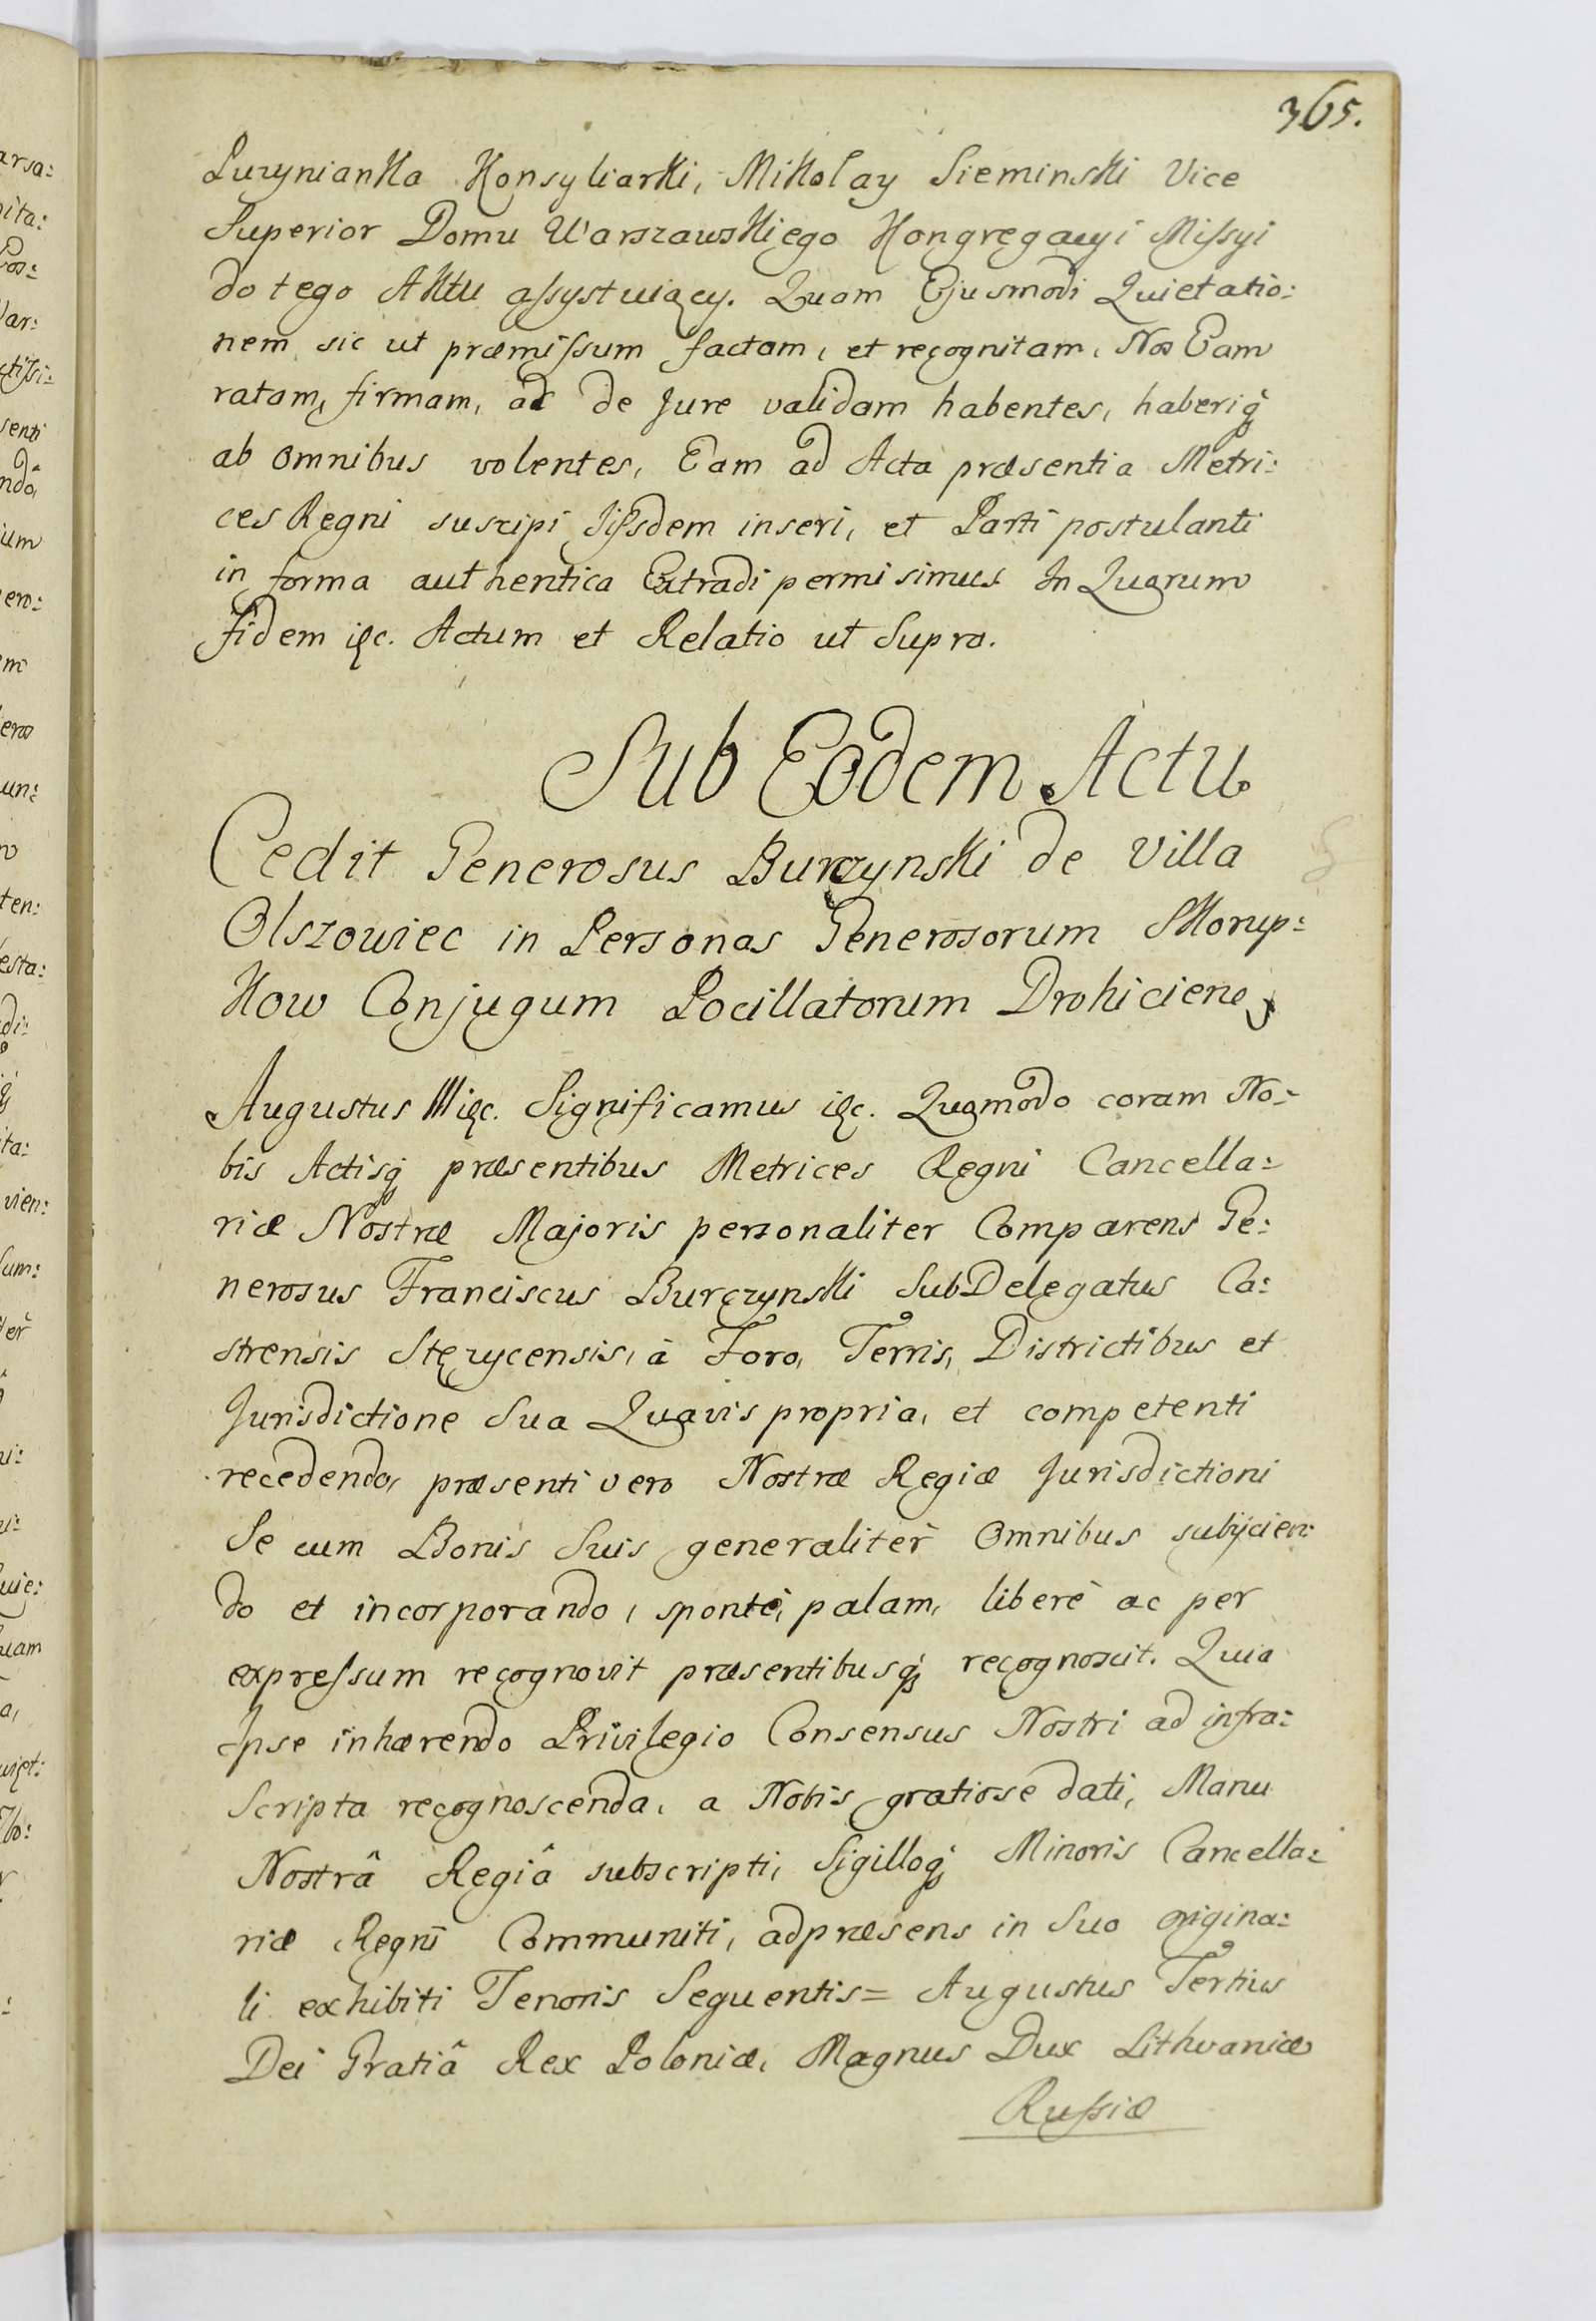 365.
Luzynianka Konsyliarki, Mikolay Sieminski Vice
Superior Domu Warszawskiego Kongregacyi Missyi
do tego Aktu assystuiący. Quam Ejusmodi Quietatio:
nem sic ut præmissum factam, et recognitam, Nos Eam
ratam, firmam, ac de Jure validam habentes, haberiq
ab omnibus volentes, Eam ad Acta præsentia Metri:
ces Regni suscipi Iisdem inseri, et Parti postulanti
in forma authentica Extradi permisimus In Quarum
fidem &c. Actum et Relatio ut Supra.
Sub Eodem Actu
Cedit Generosus Burzynski de Villa
Olszowiec in Personas Generosorum Skorup:
kow Conjugum Pocillatorum Drohiciens
Augustus III &c. Significamus &c. Quomodo coram No:
bis Actisq præsentibus Metrices Regni Cancella:
riæ Nostræ Majoris personaliter Comparens Ge:
nerosus Franciscus Burczynski SubDelegatus Ca:
strensis Stęzycensis, à Foro, Terris, Districtibus et
Jurisdictione Sua Quavis propria, et competenti
recedendo, præsenti vero Nostræ Regiæ Jurisdictioni
Se cum Bonis Suis generaliter Omnibus subijcien:
do et incorporando, sponte, palam, liberè ac per
expressum recognovit præsentibusq recognoscit. Quia
Ipse inhærendo Privilegio Consensus Nostri ad infra:
Scripta recognoscenda, a Nobis gratiose dati, Manu
Nostrâ Regiâ subscripti, Sigilloq Minoris Cancella:
riæ Regni Communiti, adpræsens in Suo origina:
li exhibiti Tenoris Sequentis= Augustus Tertius
Dei Gratiâ Rex Poloniæ, Magnus Dux Lithvaniæ
Russiæ